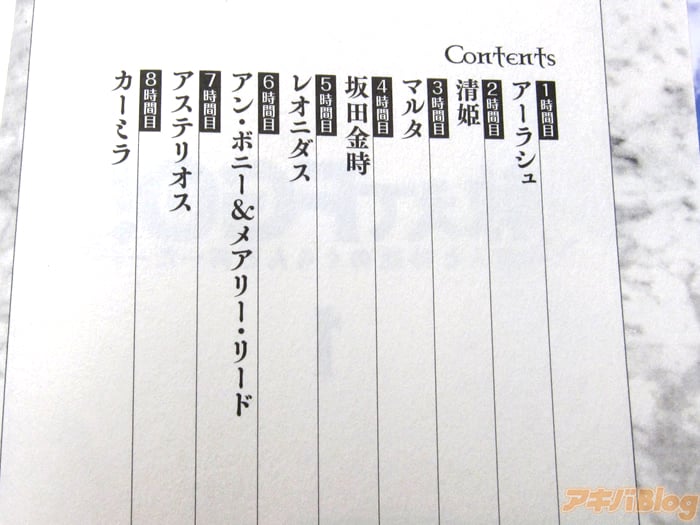 Contents
1時間目
アーラシュ
2時間目
清姫
3時間目
マルタ
4時間目
坂田金時
5時間目
レオニダス
6時間目
アン・ボニー&メアリー・リード
7時間目
アステリオス
8時間目
カーミラ
アキバBlog